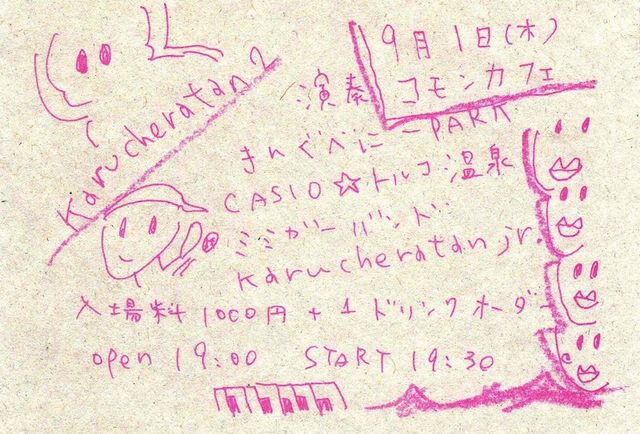 Karucheratan2
9月1日(木)
コモンカフェ
演奏
きんぐべにーPARK
CASIO☆トルコ温泉
ミミガーバンド
karucheratan jr.
入場料 1000円 + 1ドリンクオーダー
open 19:00 START 19:30